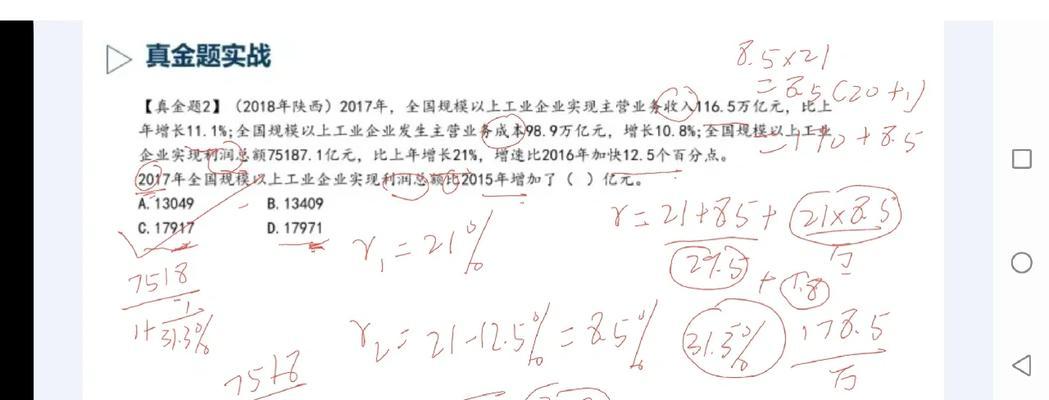 真金题实战
【真金题2】（2018年陕西）2017年，全国规模以上工业企业实现主营业务收入116.5万亿元，比上
年增长11.1%；全国规模以上工业企业发生主营业务成本98.9万亿元，增长10.8%；全国规模以上工业
企业实现利润总额75187.1亿元，比上年增长21%，增速比2016年加快12.5个百分点。
2017年全国规模以上工业企业实现利润总额比2015年增加了（ ）亿元。
A. 13049 B. 13409
C. 17917 D. 17971
8.5×21
=8.5(20+1)
=170+8.5
r=21+8.5+21×8.5
万
29.5+1.8
31.3%
178.5
万
r₁=21%
r₂=21-12.5%=8.5%
7518
1+31.3%
7518